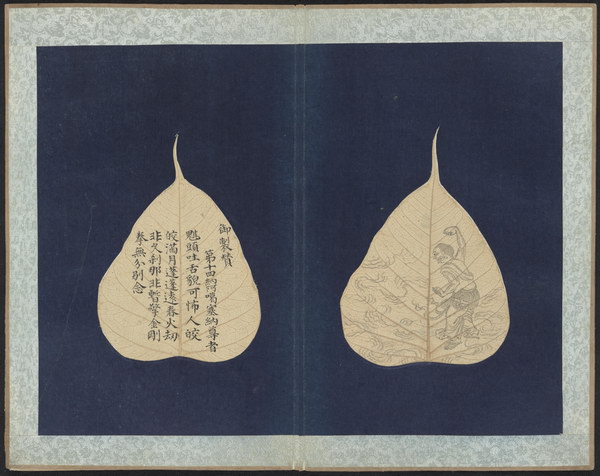 御製贊
第十四納阿噶塞納尊者
魁頭吐舌貌可怖人皎
皎滿月蓬蓬遠春火劫
非久剎那非暫擎金剛
拳無分別念